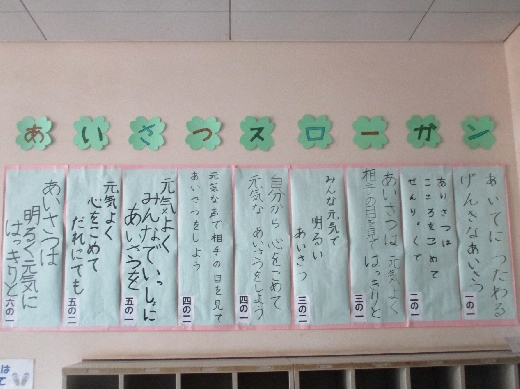 あいさつスローガン
あいてに つたわる
げんきなあいさつ
一の一
あいさつは
こころをこめて
せんりょくで
二の一
あいさつは 元気よく
相手の目を見て はっきりと
三の一
みんな元気で
明るい
あいさつ
三の二
自分から 心をこめて
元気な あいさつをしよう
四の一
元気な声で相手の目を見て
あいさつをしよう
四の二
元気よく
みんなでいっしょに
あいさつを
五の一
元気よく
心をこめて
だれにでも
五の二
あいさつは
明るく元気に
はっきりと
六の一